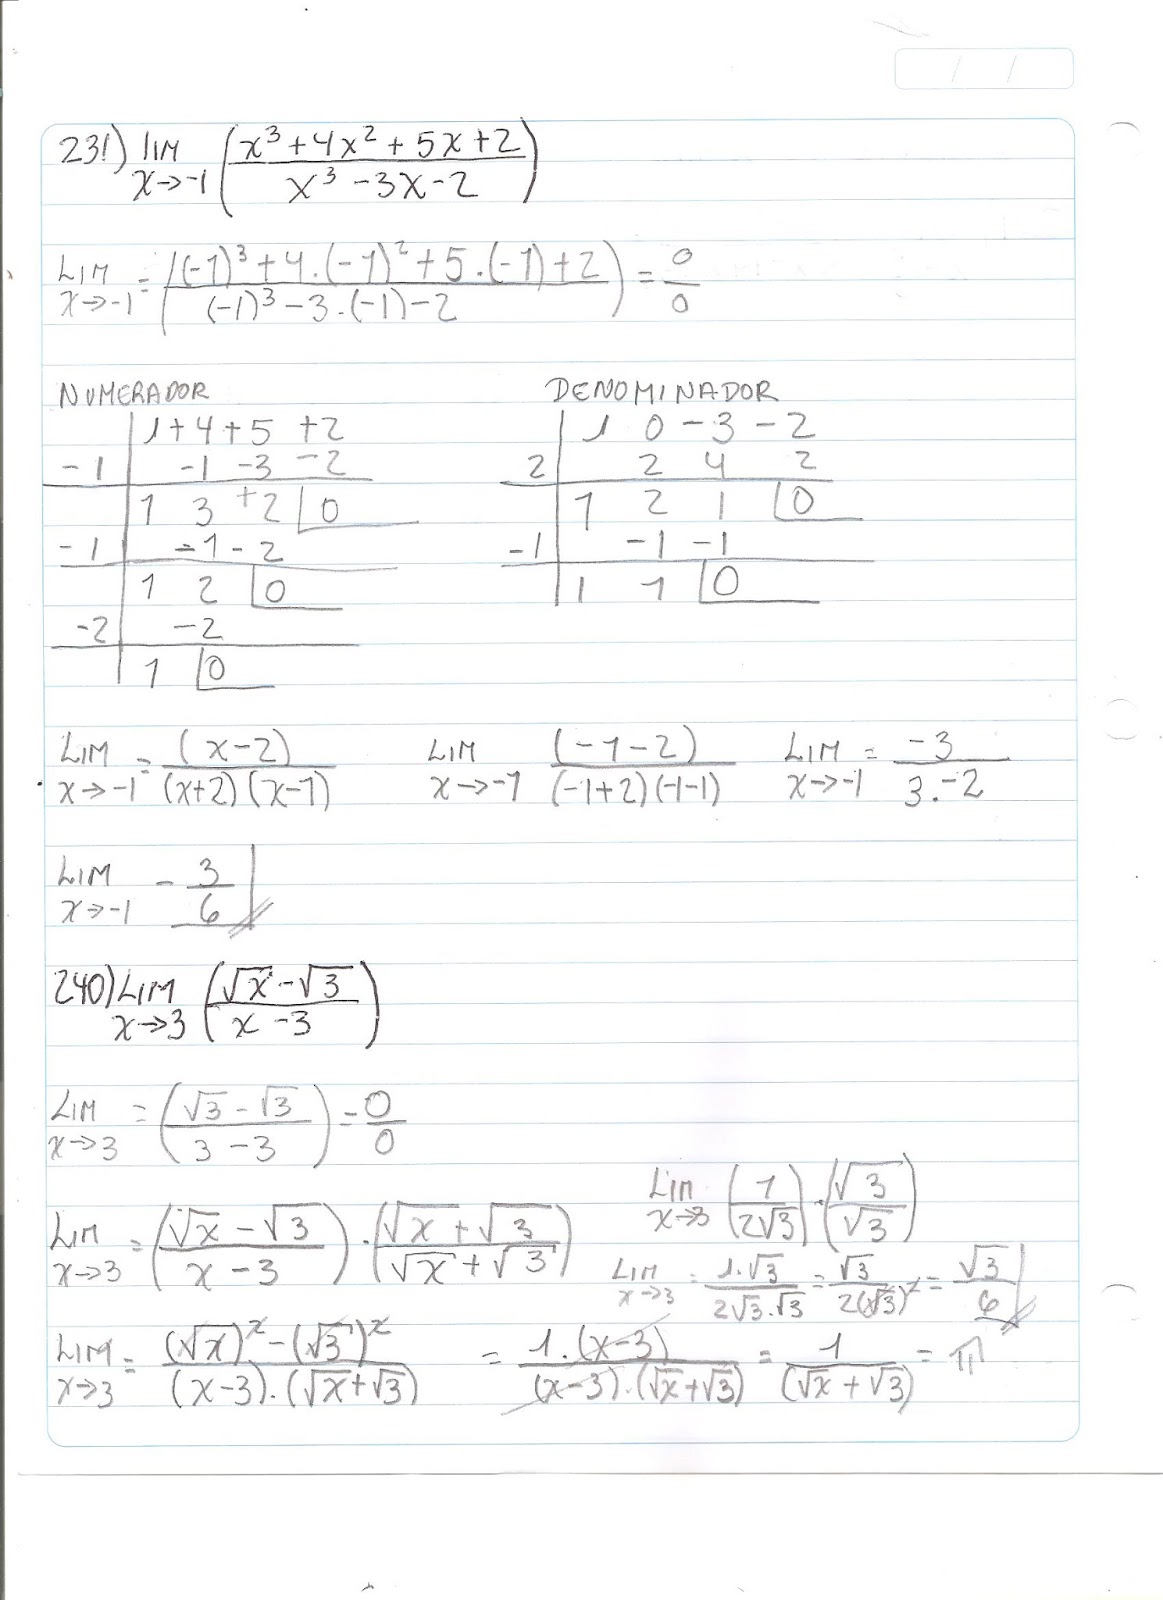 231) lim x→-1 ( (x³ + 4x² + 5x + 2) / (x³ - 3x - 2) )
Lim x→-1 = ( ((-1)³ + 4 . (-1)² + 5 . (-1) + 2) / ((-1)³ - 3 . (-1) - 2) ) = 0/0
NUMERADOR
1 + 4 + 5 + 2
-1 | -1 -3 -2
1 3 +2 | 0
-1 | -1 -2
1 2 | 0
-2 | -2
1 | 0
DENOMINADOR
1 0 - 3 - 2
2 | 2 4 2
1 2 1 | 0
-1 | -1 -1
1 1 | 0
Lim x→-1 = (x-2) / (x+2)(x-1)   Lim x→-1 (-1-2) / (-1+2)(-1-1)   Lim x→-1 = -3 / 3.-2
Lim x→-1 - 3/6
240) Lim x→3 ( (√x - √3) / (x - 3) )
Lim x→3 = ( (√3 - √3) / (3 - 3) ) = 0/0
Lim x→3 = ( (√x - √3) / (x - 3) ) . ( (√x + √3) / (√x + √3) )
Lim x→3 = ( (√x)² - (√3)² ) / ( (x-3) . (√x+√3) ) = 1.(x-3) / (x-3).(√x+√3) = 1 / (√x + √3) = π
Lim x→3 (1 / 2√3) . (√3 / √3)
Lim x→3 = 1.√3 / 2√3.√3 = √3 / 2(√3)² = √3 / 6